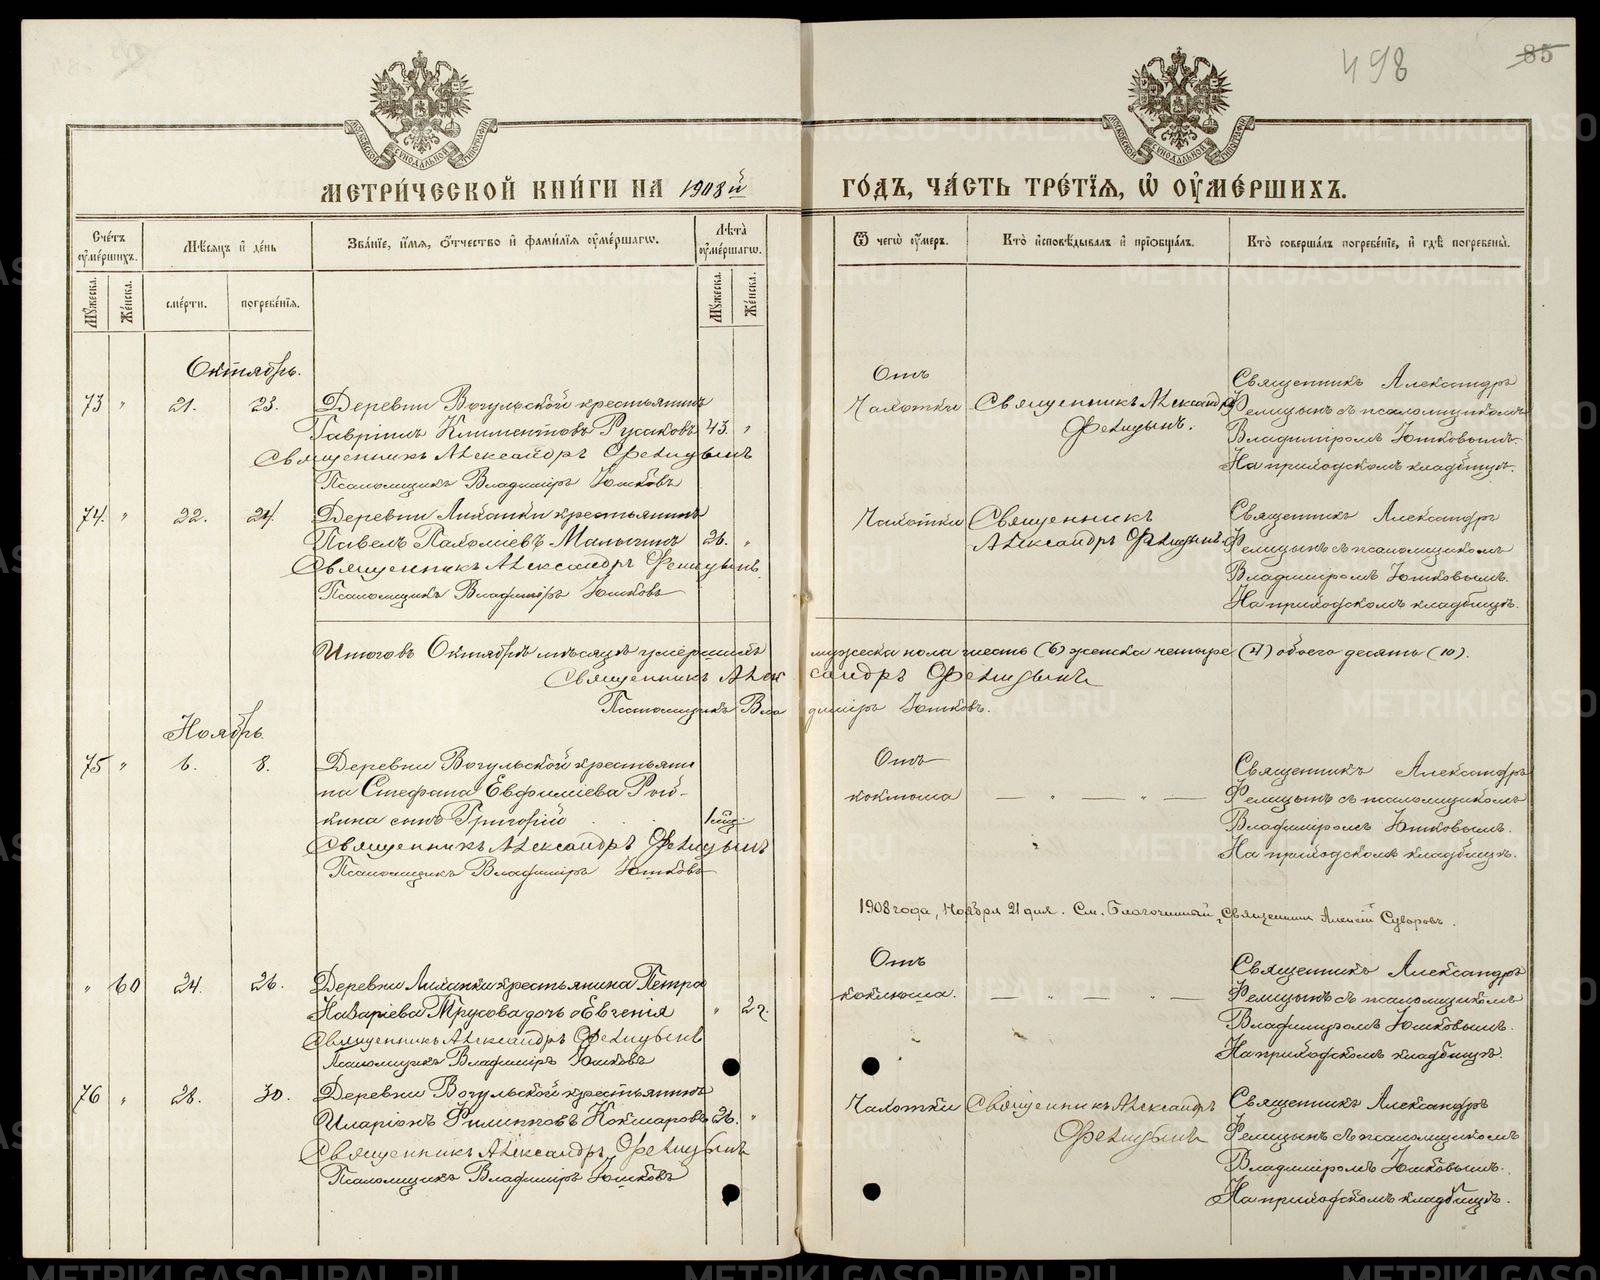 498 85
МОСКОВСКОЙ СѴНОДАЛЬНОЙ ТИПОГРАФІИ
МОСКОВСКОЙ СѴНОДАЛЬНОЙ ТИПОГРАФІИ
МЕТРИ́ЧЕСКОЙ КНИ́ГИ НА 1908й ГО́ДЪ, ЧА́СТЬ ТРЕ́ТІѦ, Ѡ ОУМЕ́РШИХЪ.
Сче́тъ оумершихъ. Мѣсяцъ и де́нь Зва́ніе, и́мѧ, о́тчество и фами́лїѧ оуме́ршагѡ. Лѣта̀ оуме́ршагѡ. Ѿ чегѡ̀ оу́меръ. Кто̀ исповѣ́дывалъ и прїобща́лъ. Кто̀ соверша́лъ погребе́нїе, и гдѣ̀ погребены̀.
Мꙋ́жеска. Же́нска. сме́рти. погребе́нїѧ. Мꙋ́жеска. Же́нска.
Октябрь.
73 " 21. 23. Деревни Вогульской крестьянинъ
Гавріилъ Климентовъ Русаковъ 43. "
Священникъ Александръ Фелицынъ
Псаломщикъ Владиміръ Юшковъ
Отъ
Чахотки
Священникъ Александръ
Фелицынъ.
Священникъ Александръ
Фелицынъ съ псаломщикомъ
Владиміромъ Юшковымъ.
На приходскомъ кладбищѣ.
74. " 22. 24. Деревни крестьянинъ
Павелъ 26. "
Священникъ Александръ Фелицынъ
Псаломщикъ Владиміръ Юшковъ
Чахотки
Священникъ
Александръ Фелицынъ.
Священникъ Александръ
Фелицынъ съ псаломщикомъ
Владиміромъ Юшковымъ.
На приходскомъ кладбищѣ.
Итого въ Октябрѣ мѣсяцѣ умершихъ мужеска пола шесть (6) женска четыре (4) обоего десять (10).
Священникъ Александръ Фелицынъ
Псаломщикъ Владиміръ Юшковъ.
Ноябрь.
75 " 6. 8. Деревни Вогульской крестьяни
на Стефана Евфиміева
сынъ Григорій
Священникъ Александръ Фелицынъ
Псаломщикъ Владиміръ Юшковъ
Отъ
коклюша — " — " —
Священникъ Александръ
Фелицынъ съ псаломщикомъ
Владиміромъ Юшковымъ.
На приходскомъ кладбищѣ.
1908 года, Ноября 21 дня. См. Благочинный, Священникъ Алексій Суворовъ.
" 60 24. 26. Деревни крестьянина Петра
Трусова дочь Евгенія " 2 г.
Священникъ Александръ Фелицынъ
Псаломщикъ Владиміръ Юшковъ
Отъ
коклюша. — " — " —
Священникъ Александръ
Фелицынъ съ псаломщикомъ
Владиміромъ Юшковымъ.
На приходскомъ кладбищѣ.
76 " 28. 30. Деревни Вогульской крестьянинъ
Иларіонъ Филипповъ Кокшаровъ 26. "
Священникъ Александръ Фелицынъ
Псаломщикъ Владиміръ Юшковъ
Чахотки
Священникъ Александръ
Фелицынъ
Священникъ Александръ
Фелицынъ съ псаломщикомъ
Владиміромъ Юшковымъ.
На приходскомъ кладбищѣ.
METRIKI.GASO-URAL.RU